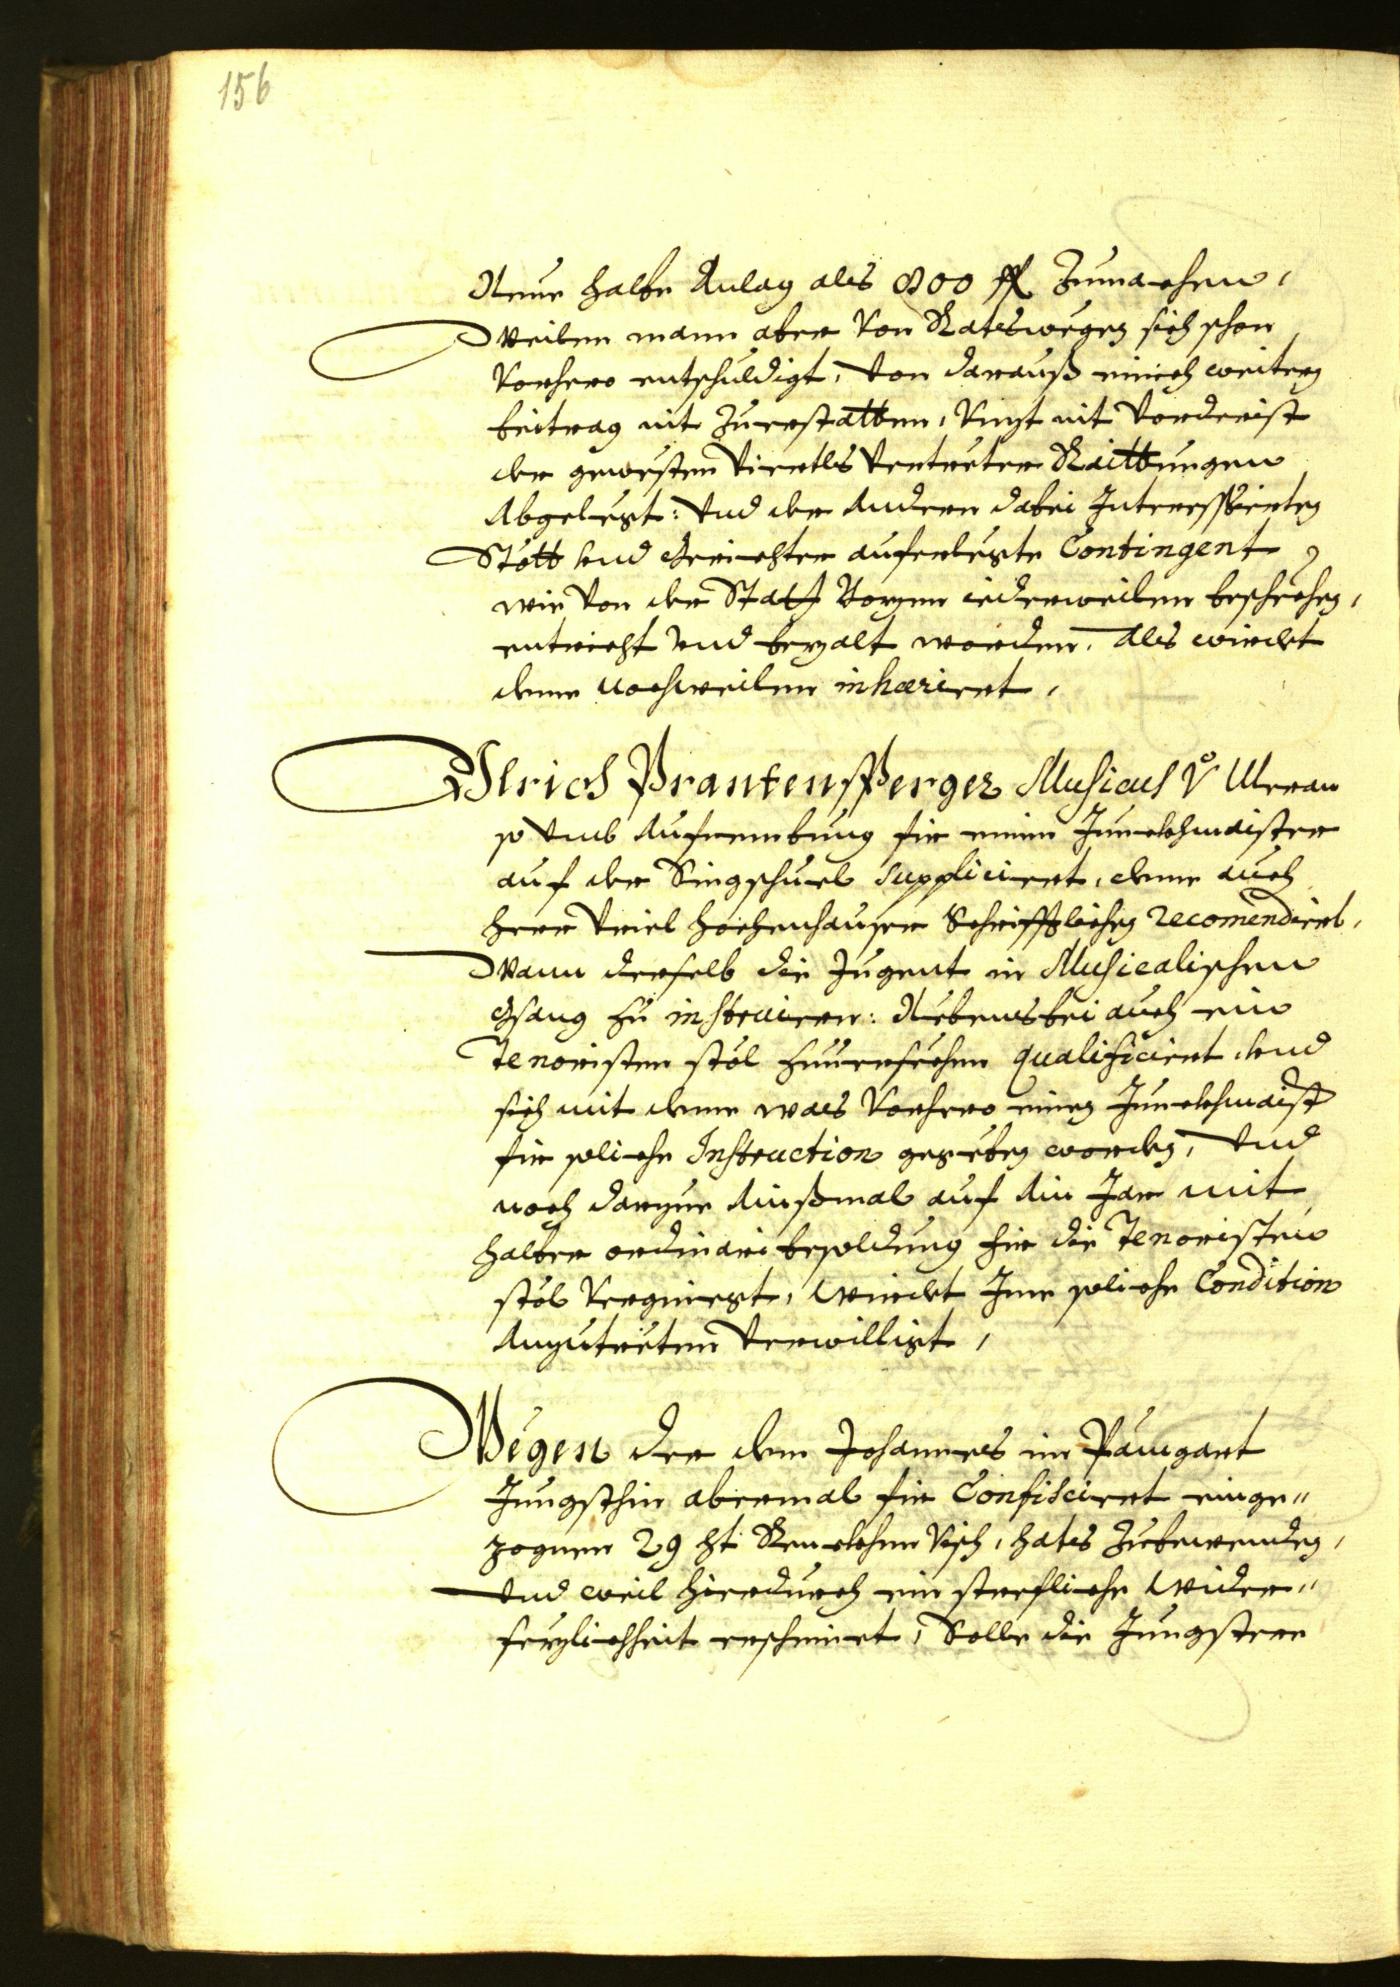 156
Neue halbe Anlag als 800 fl Zumachen,
Weilen mann aber Von Ratswegen sich schon
Vorhero entschuldigt, Von darauß einich weitern
beitrag nit Zuerstatten, Vnzt nit Vorderist
der gewesten Viertls Vertreter Raittungen
Abgelegt: Vnd der Andern dabei Interessierten
Stött vnd Gerichter auferlegte Contingent
wie Von der Statt Bozen iederweilen beschehen,
entricht vnd bezalt worden. Als wirdet
deme nochweilen inhæriert,
Vlrich Prantensperger Musicus V° Meran
so Vmb Aufnembung für einen Junckhmaister
auf der Singschuel supplicirt, deme auch
Herr Vriel Hochenhauser Schrifftlichen recomendiert,
Wann derselb die Jugent in Musicalischen
Gsang zu instruiern: Nebensbei auch ein
Tenoristen stöl Zuuersechen qualificiert, vnd
sich mit deme was Vorhero einen Junckhmaist
für soliche Instruction gegeben worden, Vnd
noch darzue Ainßmal auf Ain Jar mit
halber ordinari besoldung für die Tenoristen
stöl Vergniegt, Wirdet Ime soliche Condition
Anzutreten Verwilligt,
Wegen der dem Johannes im Paumgart
Jungsthin abermal für Confisciert einge„
zognen 29 Renckhen Visch, hats Zubewenden,
Vnd weil hierdurch ein strefliche Wider„
sezlichheit erscheinet, Solle die Jungstere